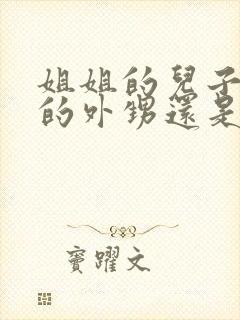 姐姐的兒子
的外甥還是
竇躍文